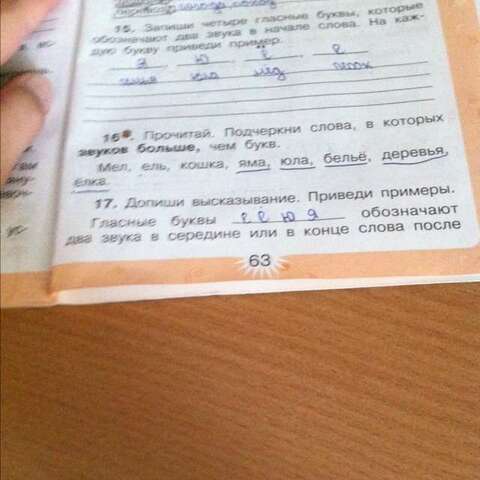 15. Запиши четыре гласные буквы, которые
обозначают два звука в начале слова. На каж-
дую букву приведи пример.
Я Ю Ё Е
юла
16. Прочитай. Подчеркни слова, в которых
звуков больше, чем букв.
Мел, ель, кошка, яма, юла, бельё, деревья,
ёлка.
17. Допиши высказывание. Приведи примеры.
Гласные буквы е ё ю я обозначают
два звука в середине или в конце слова после
63